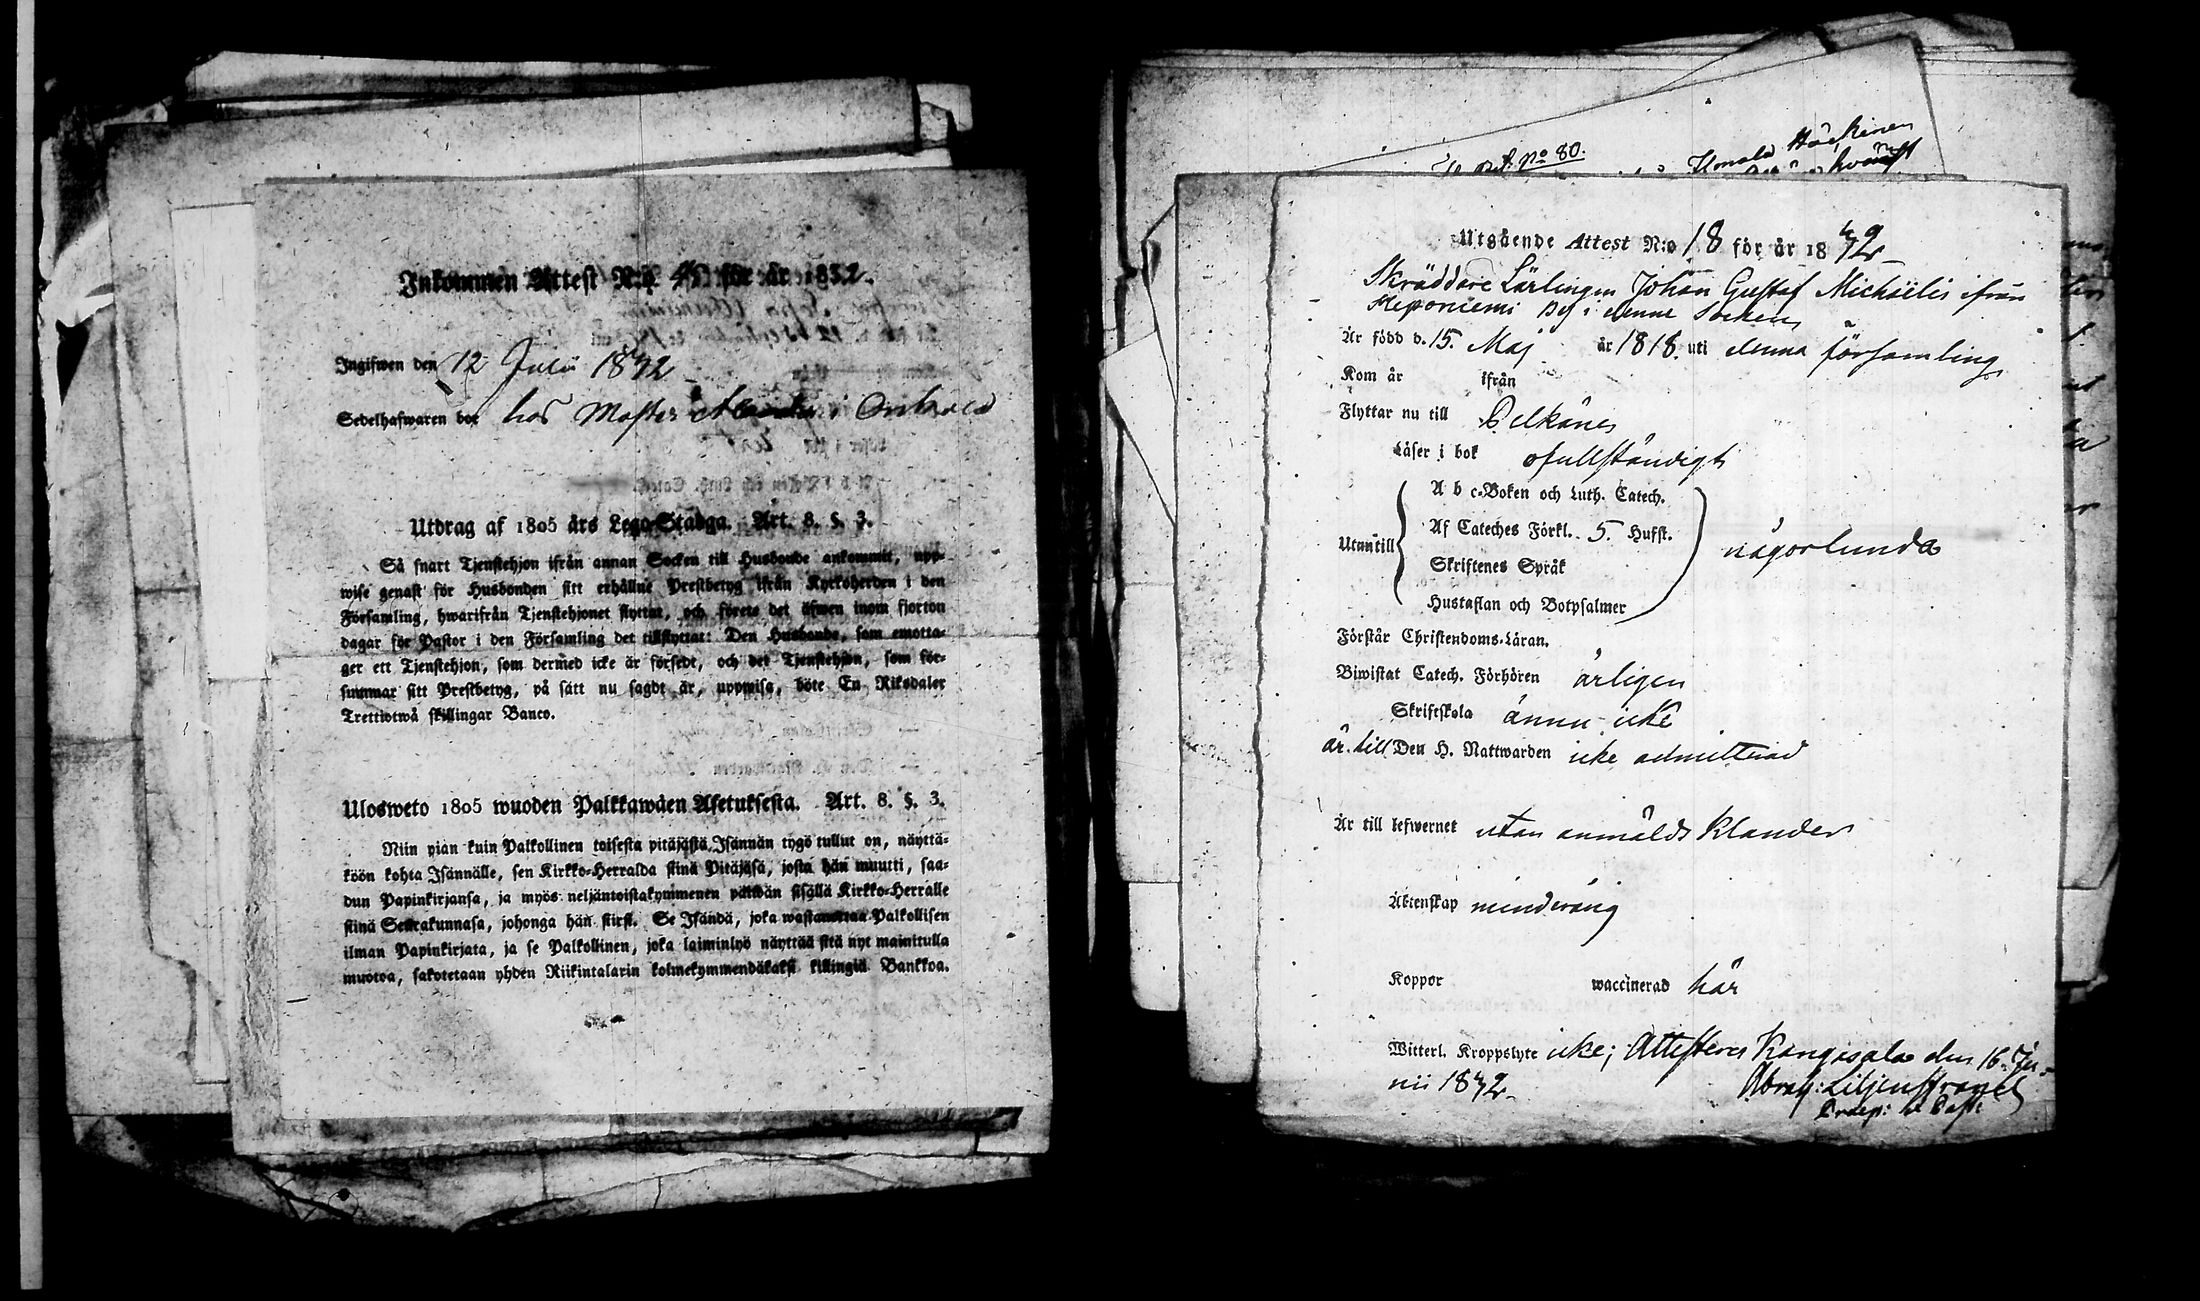 Inkommen Attest N:o 45 för år 1832.
Ingifwen den 12 Julii 1832
Sedelhafwaren bor hos Mäster i
Utdrag af 1805 års Lego-Stadga. Art. 8. §. 3.
Så snart Tjenstehjon ifrån annan Socken till Husbonde ankommit, upp-
wise genast för Husbonden sitt erhållne Prestbetyg ifrån Kyrkoherden i den
Församling, hwarifrån Tjenstehjonet flyttat, och förete det äfwen inom fjorton
dagar för Pastor i den Församling det tillflyttat: Den Husbonde, som emotta-
ger ett Tjenstehjon, som dermed icke är försedt, och det Tjenstehjon, som för-
summar sitt Prestbetyg, på sätt nu sagdt är, uppwisa, böte En Riksdaler
Trettiotwå skillingar Banco.
Ulosweto 1805 wuoden Palkkawäen Asetuksesta. Art. 8. §. 3.
Niin pian kuin Palkollinen toisesta pitäjästä Isännän tygö tullut on, näyttä-
köön kohta Isännälle, sen Kirkko-Herralda siinä Pitäjäsä, josta hän muutti, saa-
dun Papinkirjansa, ja myös neljäntoistakymmenen päiwän sisällä Kirkko-Herralle
siinä Seurakunnasa, johonga hän siirsi. Se Isändä, joka wastanottaa Palkollisen
ilman Papinkirjata, ja se Palkollinen, joka laiminlyö näyttää sitä nyt mainitulla
muotoa, sakotetaan yhden Riikintalarin kolmekymmendäkaksi killingiä Bankkoa.
No 80.
Utgående Attest N:o 18 för år 1832
Skräddare Lärlingen Johan Gustaf Michaëlis ifrån
Keponiemi By i denne Socken
Är född d. 15. Maj år 1818. uti denna församling
Kom år ifrån
Flyttar nu till Pelkäne
Läser i bok ofullständigt
A b c-Boken och Luth. Catech.
Af Cateches Förkl. 5. Hufst.
Utantill någorlunda
Skriftenes Språk
Hustaflan och Botpsalmer
Förstår Christendoms-Läran.
Biwistat Catech. Förhören årligen
Skriftskola ännu icke
är till Den H. Nattwarden icke admitterad
Är till lefwernet utan anmäldt klander
Äktenskap minderårig
Koppor waccinerad här
Witterl. Kroppslyte icke; Attesteres Kangasala den 16. Ju-
nii 1832. Abrah: Liljenstrand
Praep: & Past: